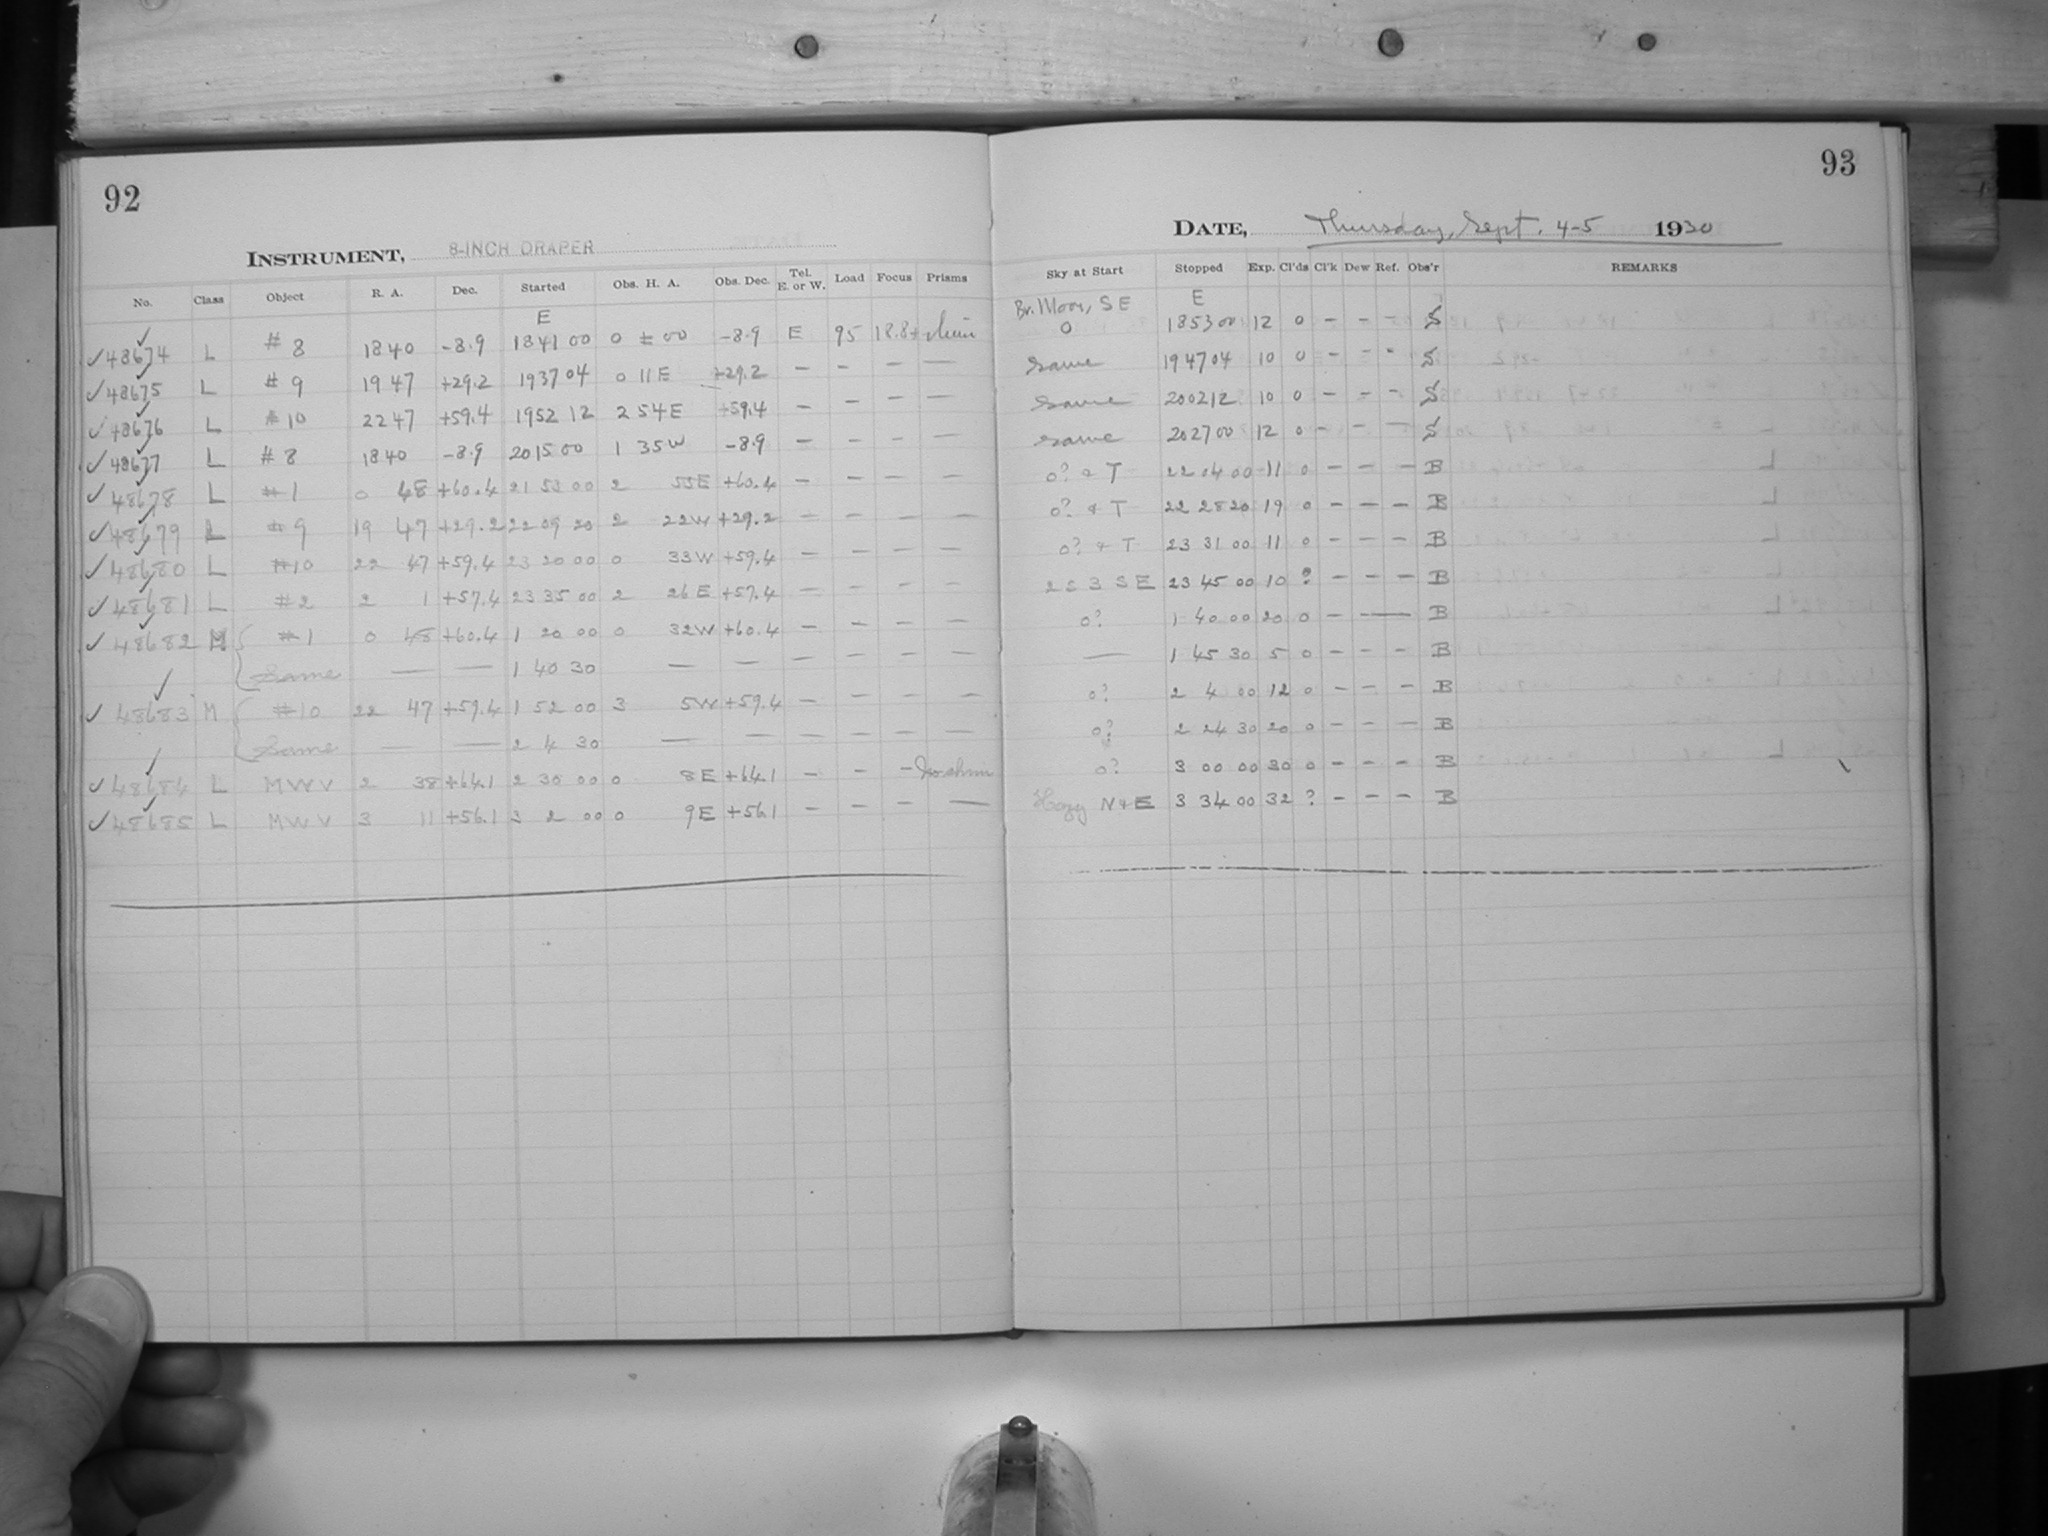 92
INSTRUMENT, 8-INCH DRAPER
No. Class Object R. A. Dec. Started Obs. H. A. Obs. Dec. Tel. E. or W. Load Focus Prisms
E
48674 L #8 18 40 -8.9 18 41 00 0 ± 00 -8.9 E 95 18.8+
48675 L #9 19 47 +29.2 19 37 04 0 11 E +29.2 — — — —
48676 L #10 22 47 +59.4 19 52 12 2 54 E +59.4 — — — —
48677 L #8 18 40 -8.9 20 15 00 1 35 W -8.9 — — — —
48678 L #1 0 48 +60.4 21 53 00 2 55 E +60.4 — — — —
48679 L #9 19 47 +29.2 22 09 20 2 22 W +29.2 — — — —
48680 L #10 22 47 +59.4 23 20 00 0 33 W +59.4 — — — —
48681 L #2 2 1 +57.4 23 35 00 2 26 E +57.4 — — — —
48682 M #1 0 48 +60.4 1 20 00 0 32 W +60.4 — — — —
Same — — 1 40 30 — — — — — —
48683 M #10 22 47 +59.4 1 52 00 3 5 W +59.4 — — — —
Same — — 2 4 30 — — — — — —
48684 L MWV 2 38 +64.1 2 30 00 0 8 E +64.1 — — —
48685 L MWV 3 11 +56.1 3 2 00 0 9 E +56.1 — — — —
93
DATE, Thursday, Sept. 4-5 1930
Sky at Start Stopped Exp. Cl'ds Cl'k Dew Ref. Obs'r REMARKS
Br. Moon, SE E
0 18 53 00 12 0 — — — S
Same 19 47 04 10 0 — — — S
Same 20 02 12 10 0 — — — S
Same 20 27 00 12 0 — — — S
0? & T 22 04 00 11 0 — — — B
0? & T 22 28 20 19 0 — — — B
0? & T 23 31 00 11 0 — — — B
2 S 3 S E 23 45 00 10 ? — — — B
0? 1 40 00 20 0 — — — B
— 1 45 30 5 0 — — — B
0? 2 4 00 12 0 — — — B
0? 2 24 30 20 0 — — — B
0? 3 00 00 30 0 — — — B
Hazy N & E 3 34 00 32 ? — — — B